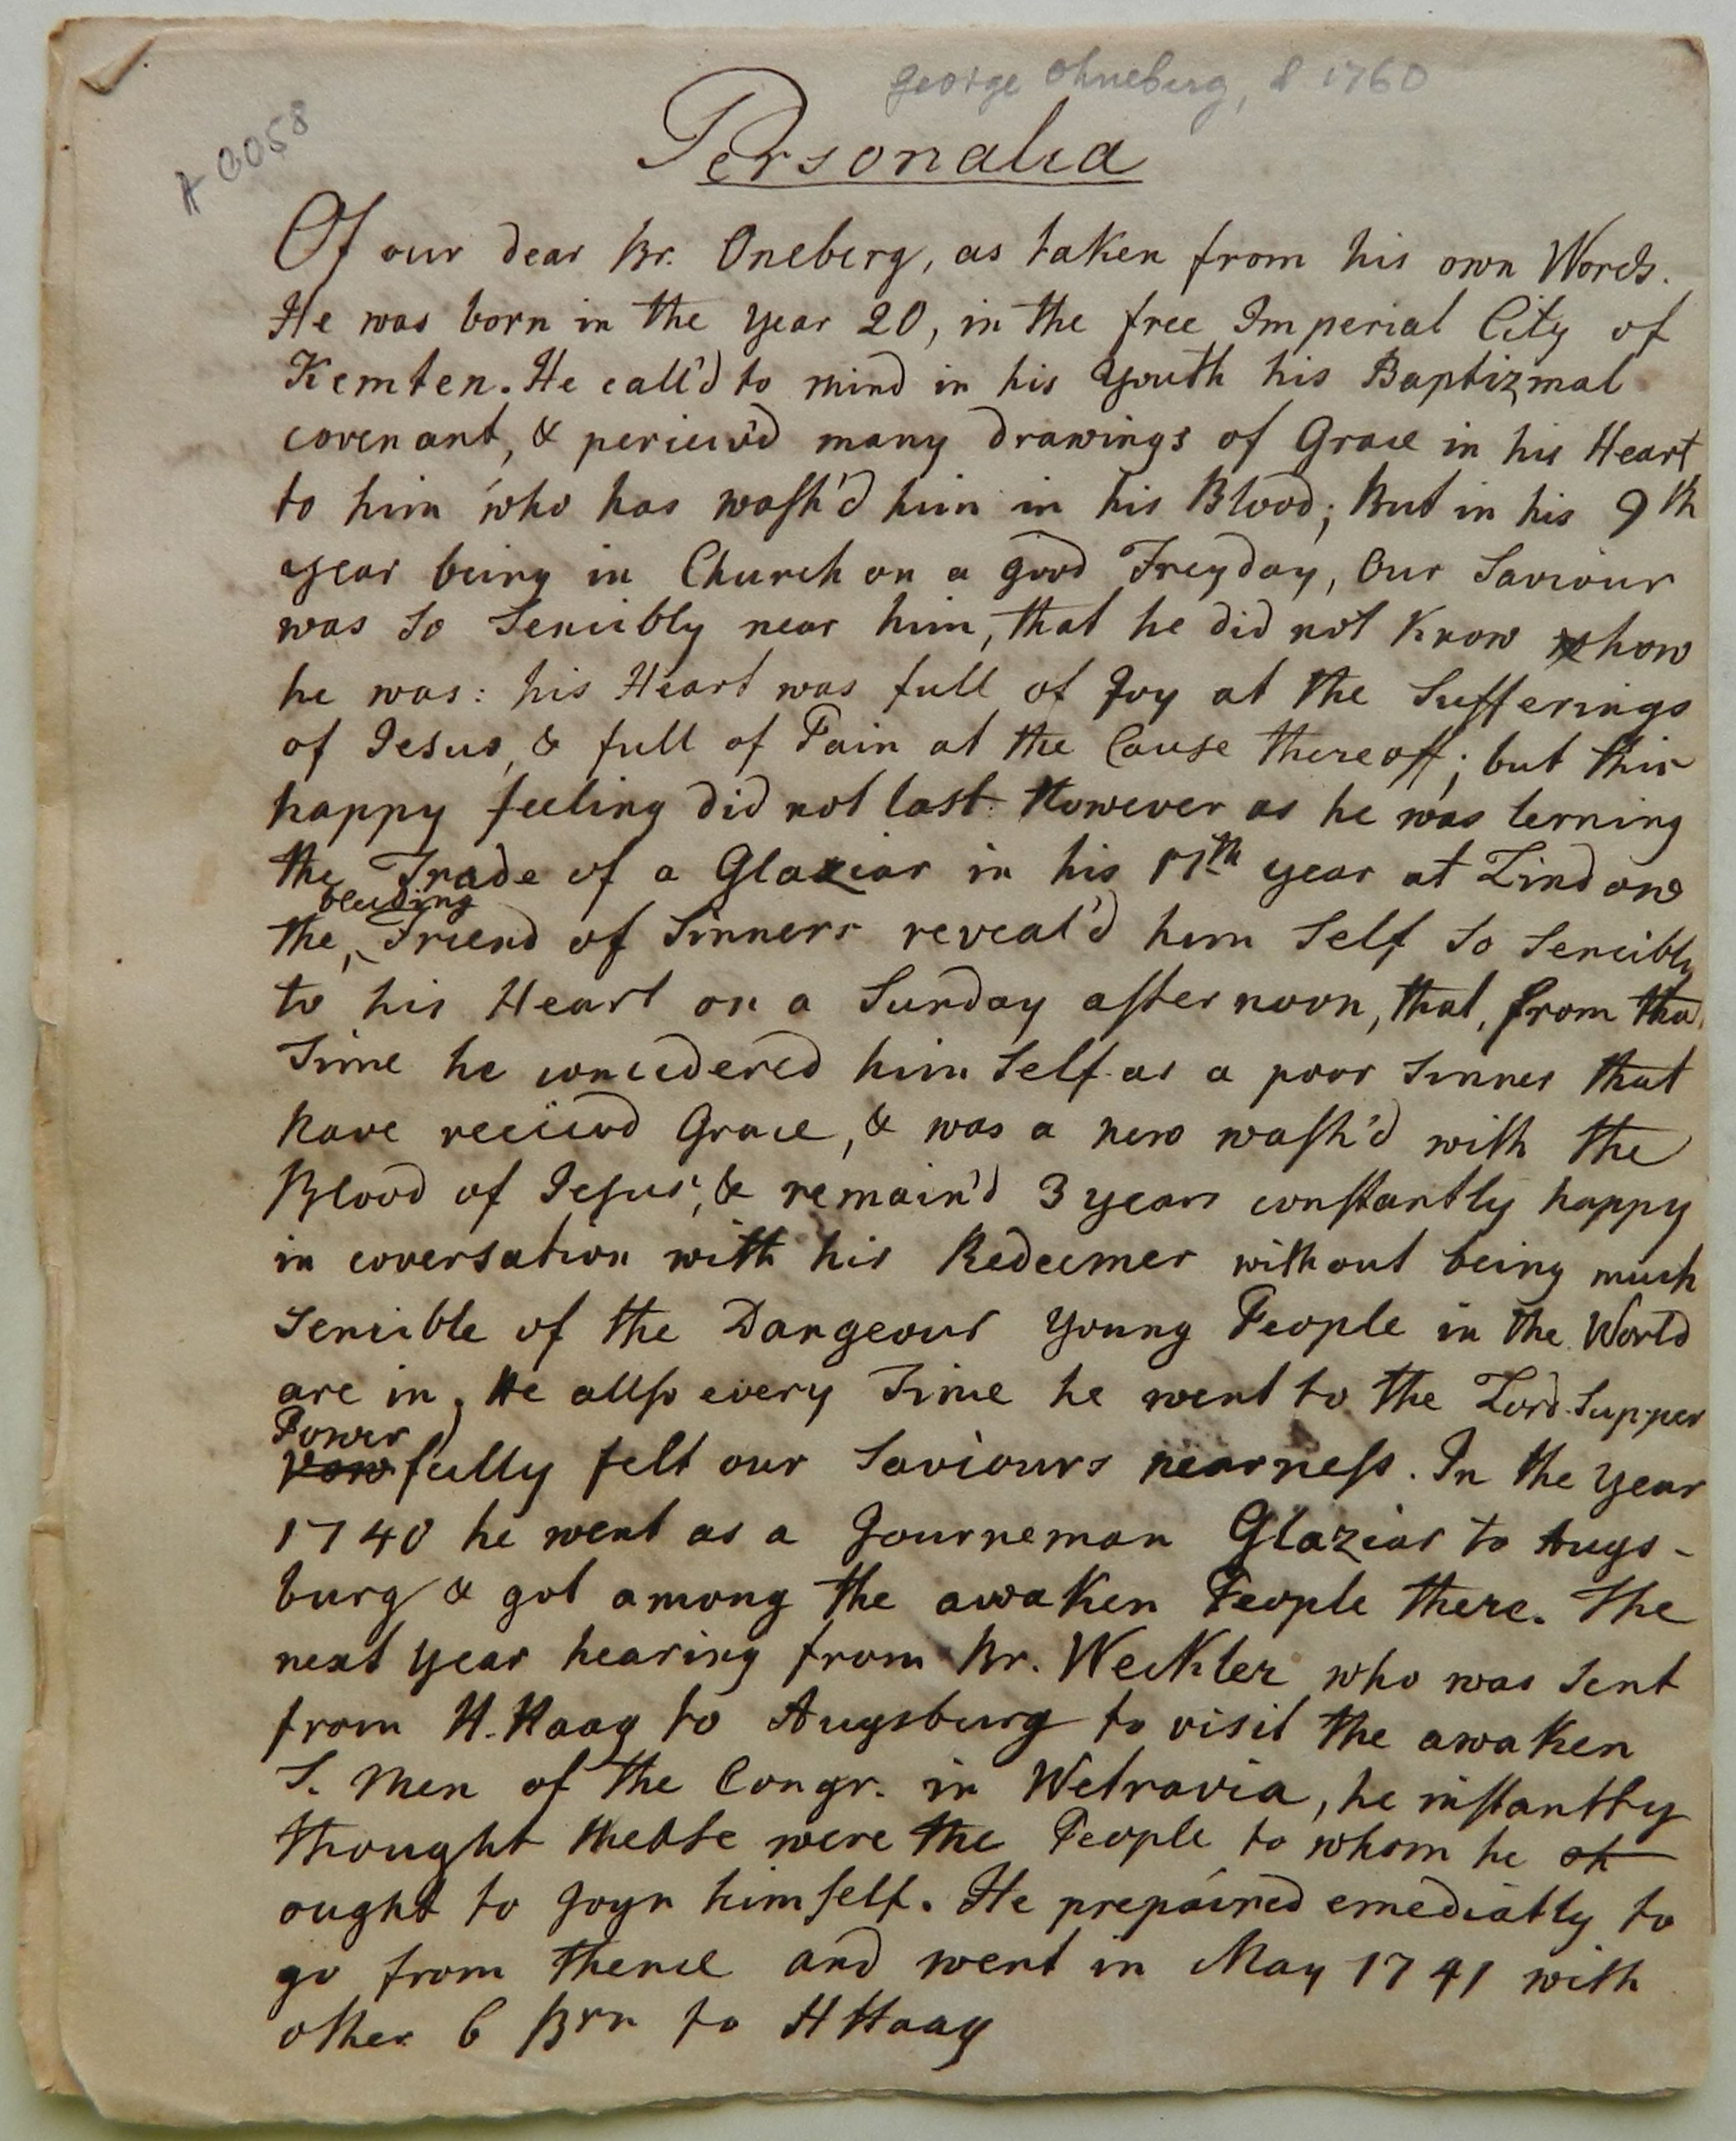 George Ohneberg, d 1760
A 0058
Personalia
Of our dear Br. Oneberg, as taken from his own Words.
He was born in the year 20, in the free Imperial City of
Kemten. He call'd to mind in his Youth his Baptizmal
covenant, & periciev'd many drawings of Grace in his Heart
to him who has wash'd him in his Blood; But in his 9th
year being in Church on a good Freyday, Our Saviour
was so Sencibly near him, that he did not Know how
he was: his Heart was full of Joy at the Sufferings
of Jesus, & full of Pain at the Cause thereoff; but this
happy feeling did not last. However as he was lerning
the Trade of a Glaziar in his 17th year at Lindow
the bleeding Friend of Sinners reveal'd him Self So Sencibly
to his Heart on a Sunday afternoon, that, from tha
Time he concedered him Self as a poor Sinner that
have recieved Grace, & was a new wash'd with the
Blood of Jesus, & remain'd 3 years constantly happy
in coversation with his Redeemer without being much
Sencible of the Dangeour Young People in the World
are in, He allso every Time he went to the Lord Supper
Powerfully felt our Saviours nearness. In the year
1740 he went as a Journeman Glaziar to Augs-
burg & got among the awaken People there. The
next year hearing from Br. Weckler who was Sent
from H. Haag to Augsburg to visit the awaken
S. Men of the Congr. in Wetravia, he instantly
thought thebse were the People to whom he
ought to Joyn himself. He prepaired emediatly to
go from thence and went in May 1741 with
other 6 Brn to H Haag